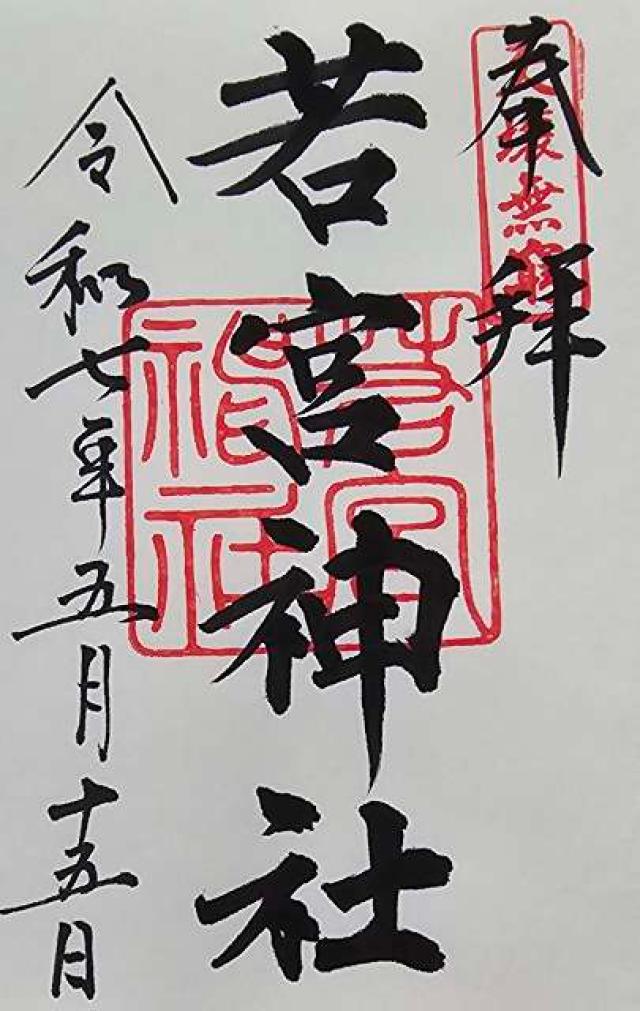 奉拝
天壌無窮
若宮神社
若宮神社
令和七年五月十五日